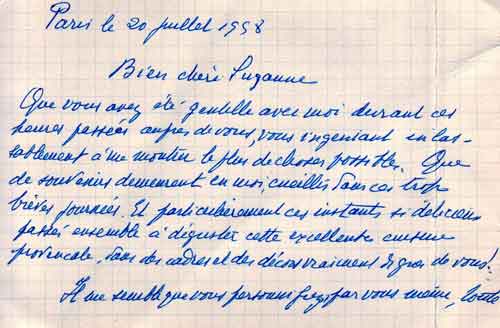 Paris le 20 juillet 1958
Bien chère Suzanne
Que vous avez été gentille avec moi durant ces
heures passées auprès de vous, vous ingéniant inlas-
sablement à me montrer le plus de choses possible. Que
de souvenirs demeurent en moi, cueillis dans ces trop
brèves journées. Et particulièrement ces instants si délicieux
passés ensemble à déguster cette excellente cuisine
provençale, dans des cadres et des décors vraiment dignes de vous!
Il me semble que vous personnifiez par vous même, toute